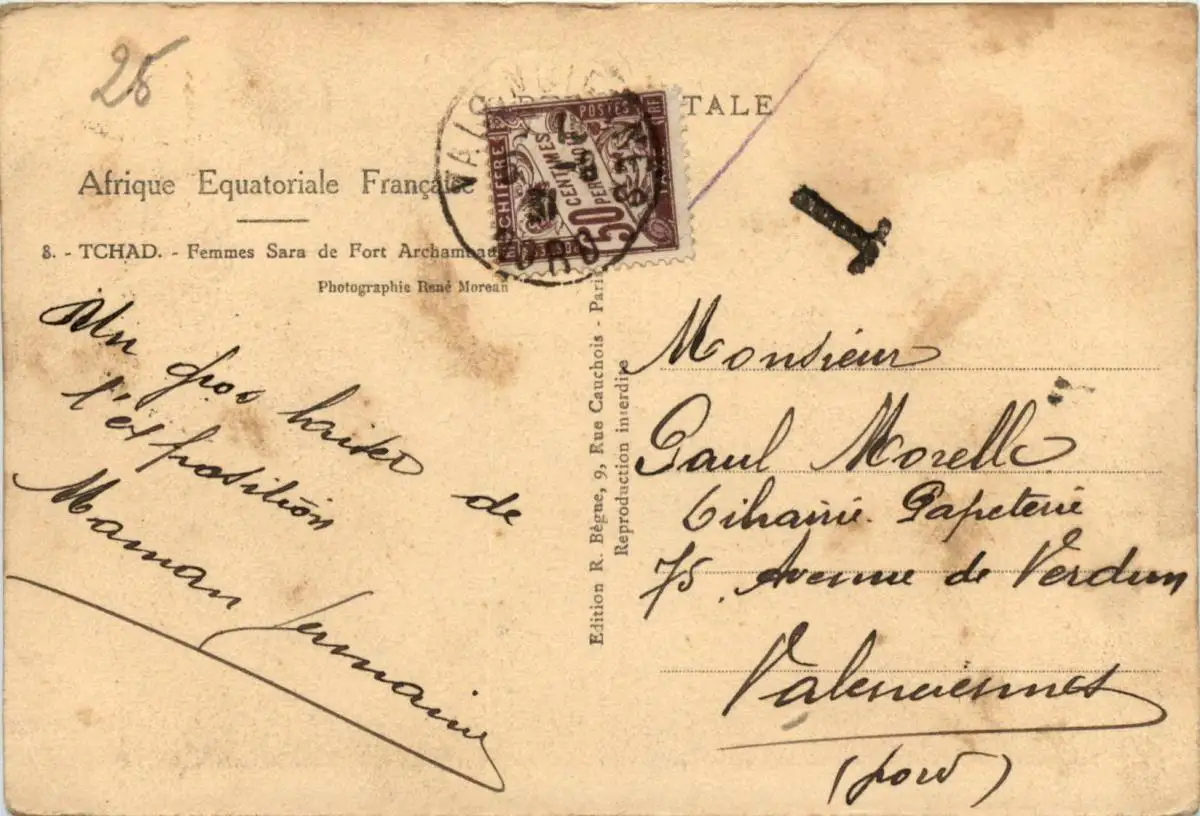 25
CARTE POSTALE
Afrique Equatoriale Française
8. - TCHAD. - Femmes Sara de Fort Archambau
Photographie René Moreau
CHIFFRE
POSTES
50 CENTIMES
PER
VALENCIENNES
NORD
T
Edition R. Bègue, 9, Rue Cauchois - Paris
Reproduction interdite
Un gros baiser de
l'exposition
Maman Germaine
Monsieur
Paul Morelle
Librairie Papeterie
75 Avenue de Verdun
Valenciennes
(Nord)